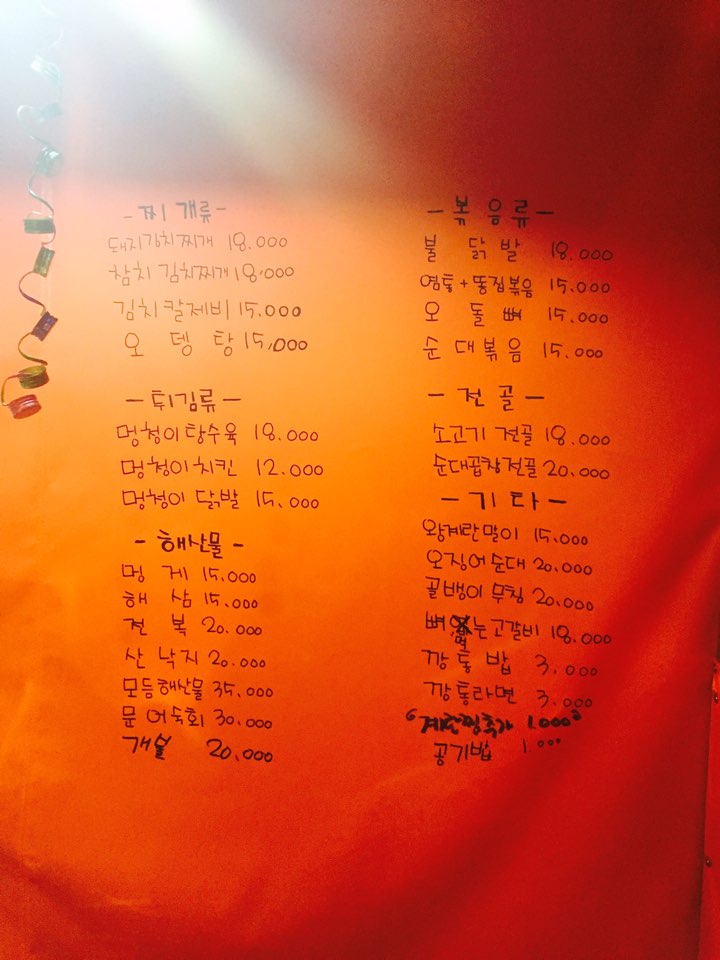 - 찌개류 -
돼지김치찌개 18.000
참치 김치찌개 18,000
김치칼제비 15.000
오 뎅 탕 15,000
- 튀김류 -
멍청이 탕수육 18.000
멍청이 치킨 12.000
멍청이 닭발 15.000
- 해산물 -
멍 게 15.000
해 삼 15.000
전 복 20.000
산 낙지 20.000
모듬해산물 35.000
문어숙회 30.000
개불 20.000
- 볶음류 -
불 닭 발 18.000
염통+똥집볶음 15.000
오 돌 뼈 15.000
순 대 볶 음 15.000
- 전골 -
소고기 전골 18.000
순대곱창전골 20.000
- 기타 -
왕계란말이 15.000
오징어순대 20.000
골뱅이 무침 20.000
뼈없는고갈비 18.000
깡 통 밥 3.000
깡통라면 3.000
"계란찜추가 1.000"
공기밥 1.000